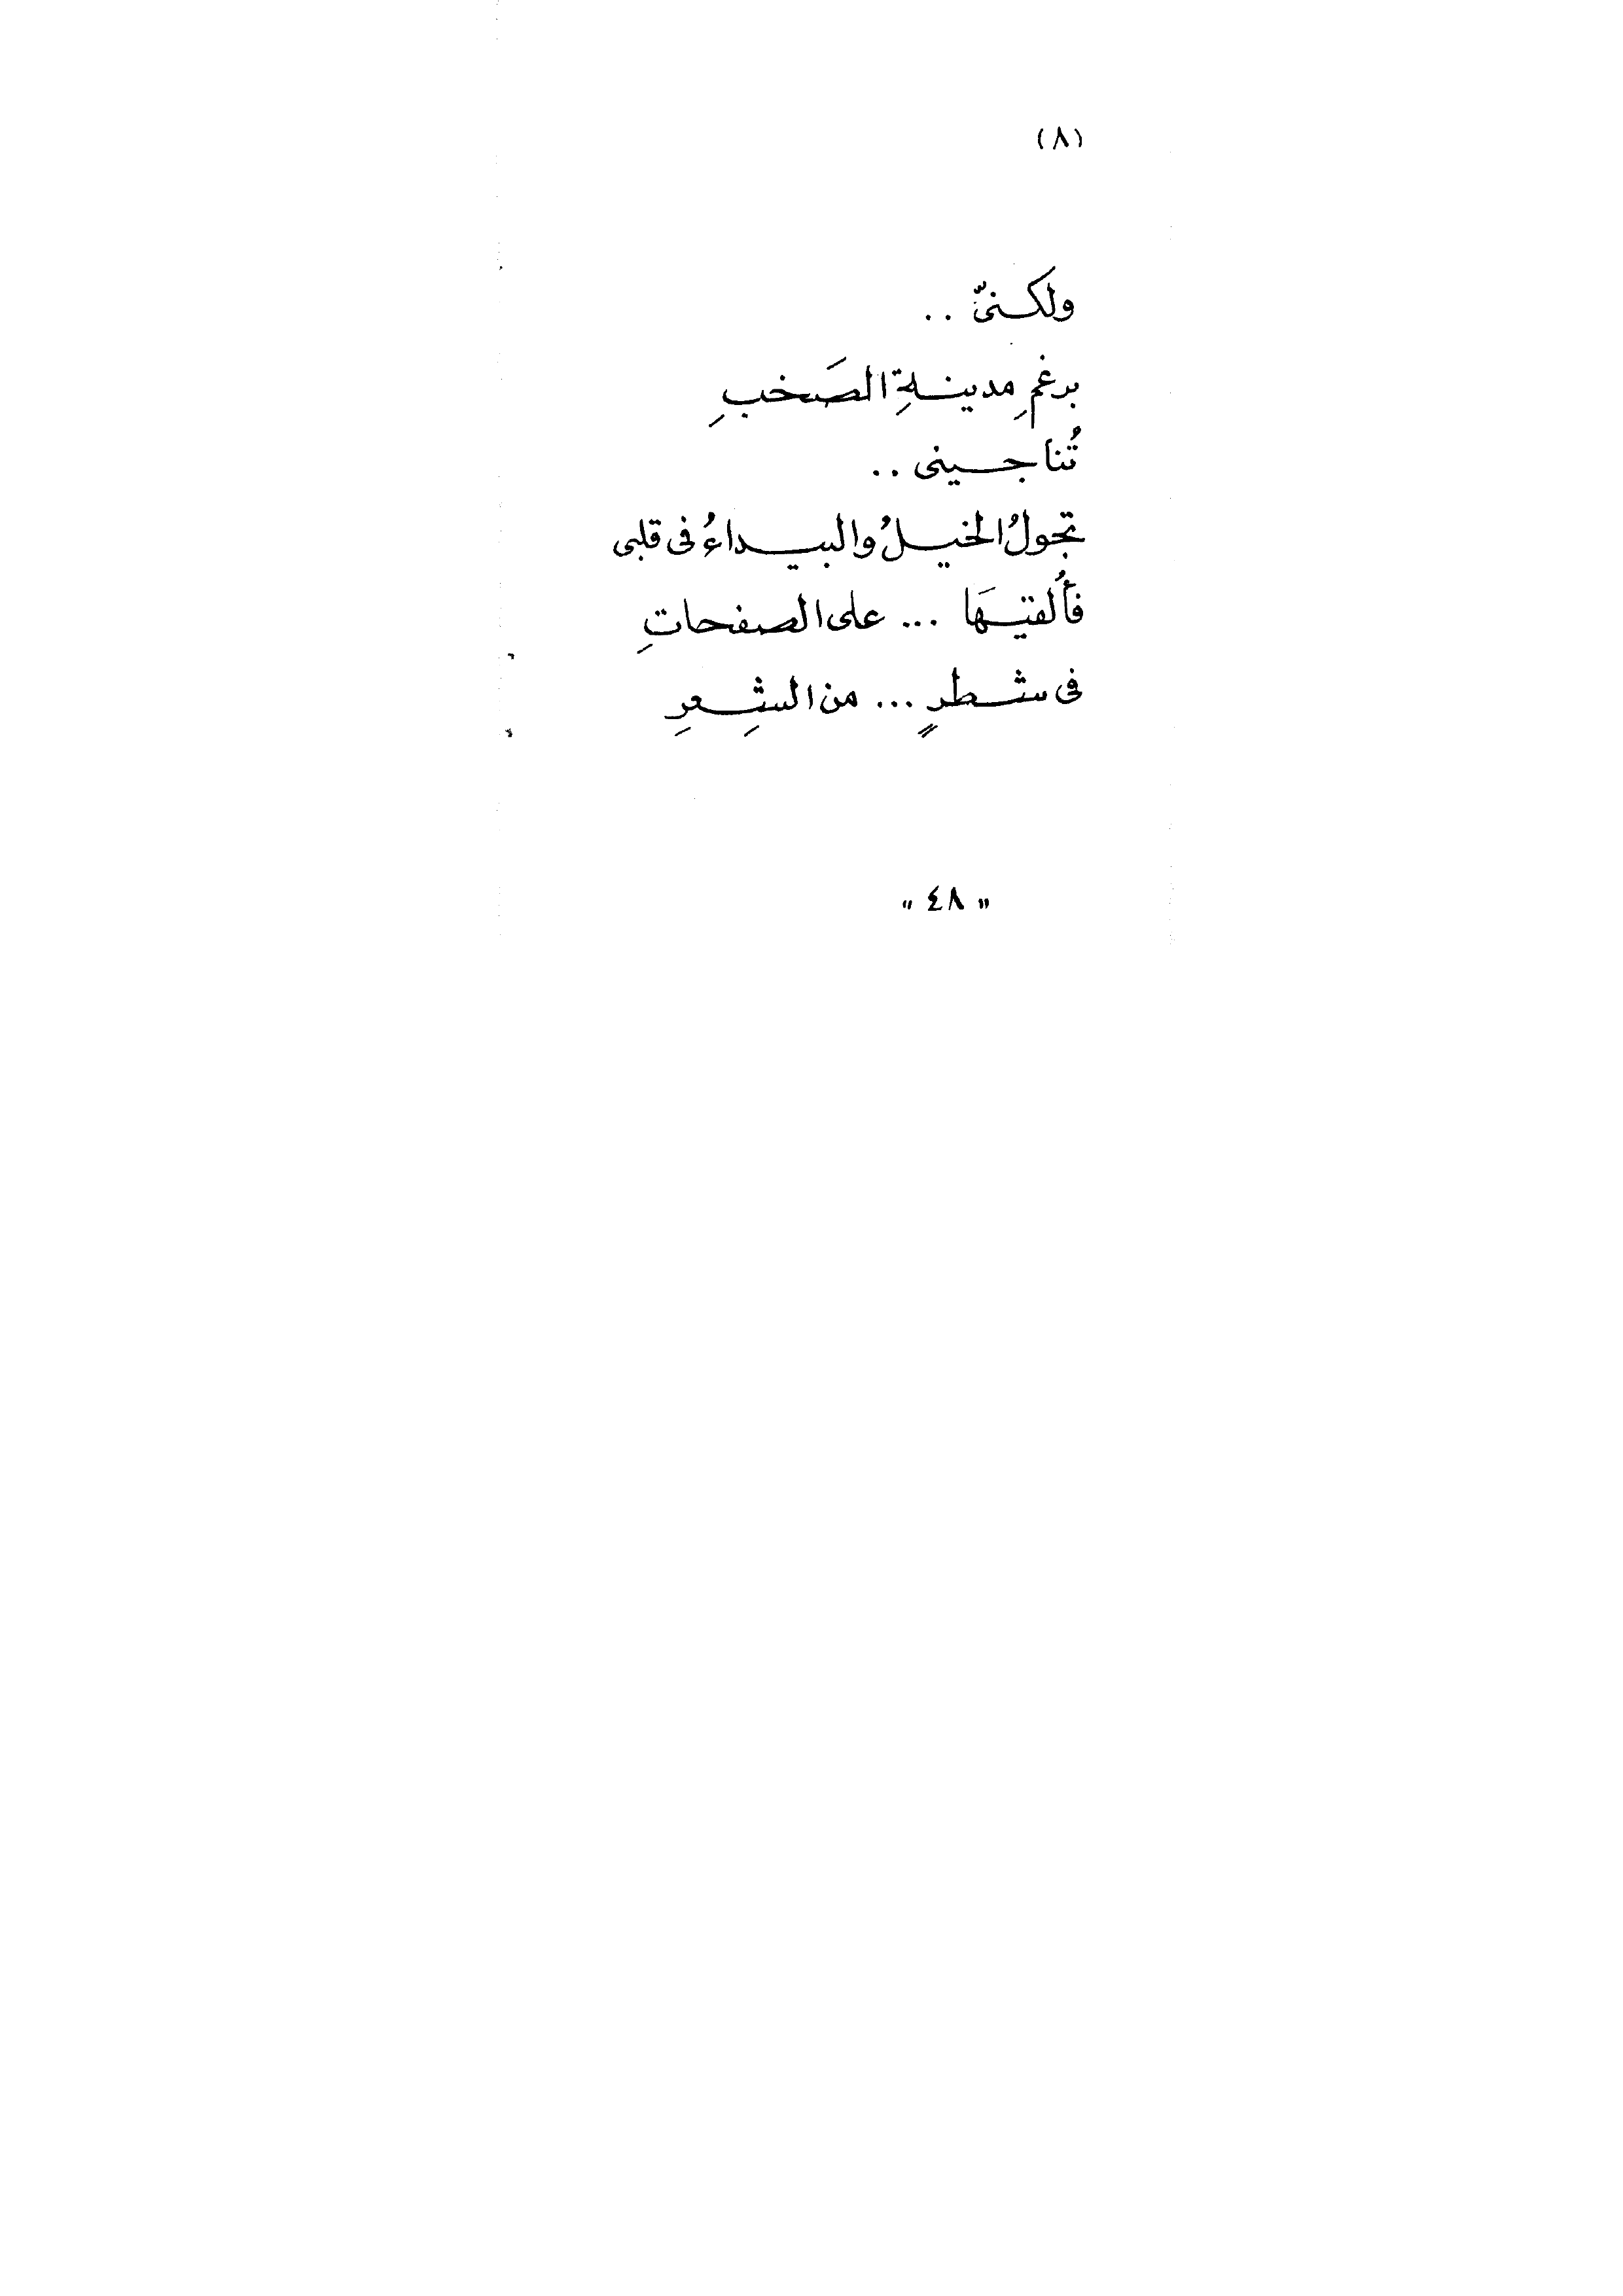 (٨)
ولكـنىّ ..
برغمِ مدينـةِ الصَخبِ
تُناجـينى ..
تجولُ الخيـلُ والبيـداءُ فى قلبى
فأُلقيـهَا ... على الصفحاتِ
فى شـطرٍ ... من الشِـعرِ
" ٤٨ "